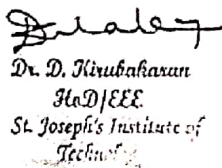 Dr. D. Kirubakaran
HoD/EEE
St. Joseph's Institute of